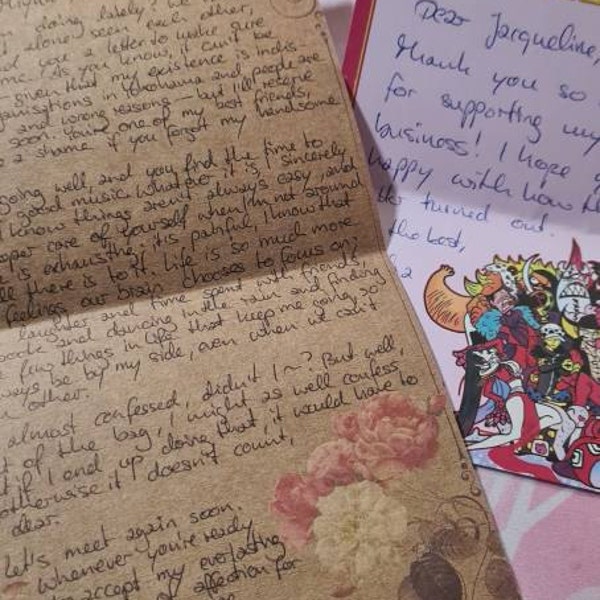 doing lately? We
alone seen each other,
you a letter to make sure
me! As you know, it can't be
given that my existence is indis-
organisations in Yokohama and people are
and wrong reasons - but I'll receive
soon. You're one of my best friends,
a shame if you forgot my handsome
going well, and you find the time to
good music. Whatever it is, I sincerely
know things aren't always easy, and
proper care of yourself when I'm not around
is exhausting, it is painful, I know that
all there is to it. Life is so much more
feelings our brain chooses to focus on;
laughter and time spent with friends
and dancing in the rain and finding
few things in life that keep me going, so
always be by my side, even when we can't
other.
almost confessed, didn't I~? But well,
of the bag, I might as well confess
if I end up doing that, it would have to
otherwise it doesn't count,
dear.
Let's meet again soon.
whenever you're ready
to accept my everlasting
affection for
Dear Jacqueline,
thank you so
for supporting my
business! I hope
happy with how
turned out.
the best,